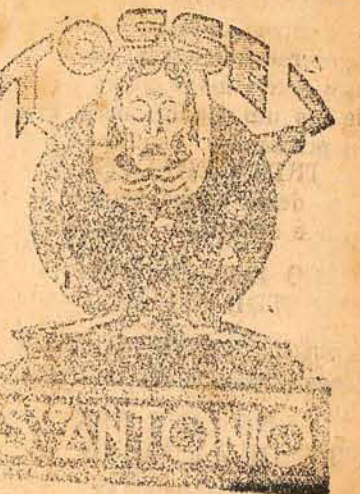 TOSSE?
STO ANTONIO